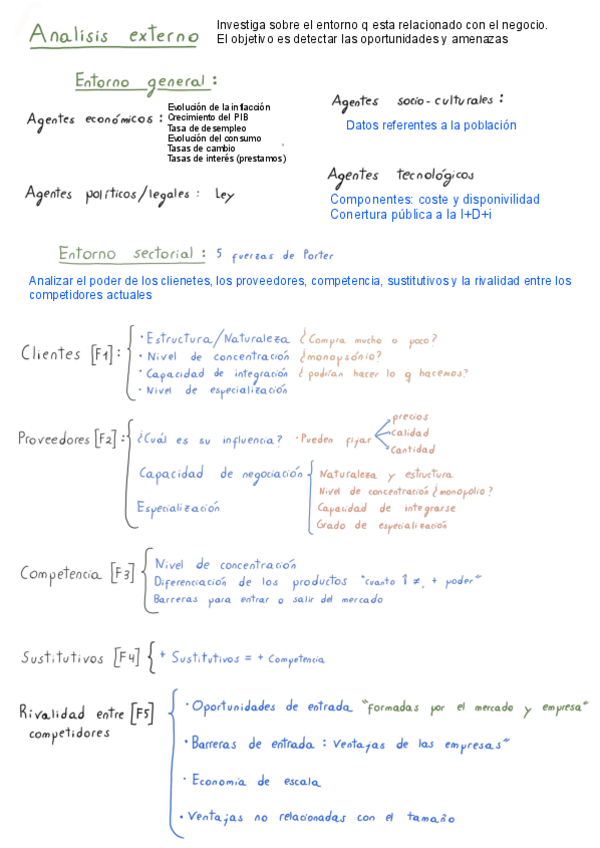 Analisis externo
Investiga sobre el entorno q esta relacionado con el negocio.
El objetivo es detectar las oportunidades y amenazas
Entorno general:
Agentes económicos:
Evolución de la inflacción
Crecimiento del PIB
Tasa de desempleo
Evolución del consumo
Tasas de cambio
Tasas de interés (prestamos)
Agentes socio-culturales:
Datos referentes a la población
Agentes políticos/legales: Ley
Agentes tecnológicos
Componentes: coste y disponivilidad
Conertura pública a la I+D+i
Entorno sectorial: 5 fuerzas de Porter
Analizar el poder de los clienetes, los proveedores, competencia, sustitutivos y la rivalidad entre los
competidores actuales
Clientes [F1]:
· Estructura/Naturaleza ¿Compra mucho o poco?
· Nivel de concentración ¿monopsónio?
· Capacidad de integración ¿podrían hacer lo q hacemos?
· Nivel de especialización
Proveedores [F2]:
¿Cuál es su influencia? · Pueden fijar
precios
calidad
cantidad
Capacidad de negociación
Naturaleza y estructura
Nivel de concentración ¿monopolio?
Capacidad de integrarse
Grado de especialización
Especialización
Competencia [F3]
Nivel de concentración
Diferenciación de los productos "cuanto ↑ ≠, + poder"
Barreras para entrar o salir del mercado
Sustitutivos [F4]
+ Sustitutivos = + Competencia
Rivalidad entre [F5]
competidores
· Oportunidades de entrada "formadas por el mercado y empresa"
· Barreras de entrada: Ventajas de las empresas"
· Economía de escala
· Ventajas no relacionadas con el tamaño